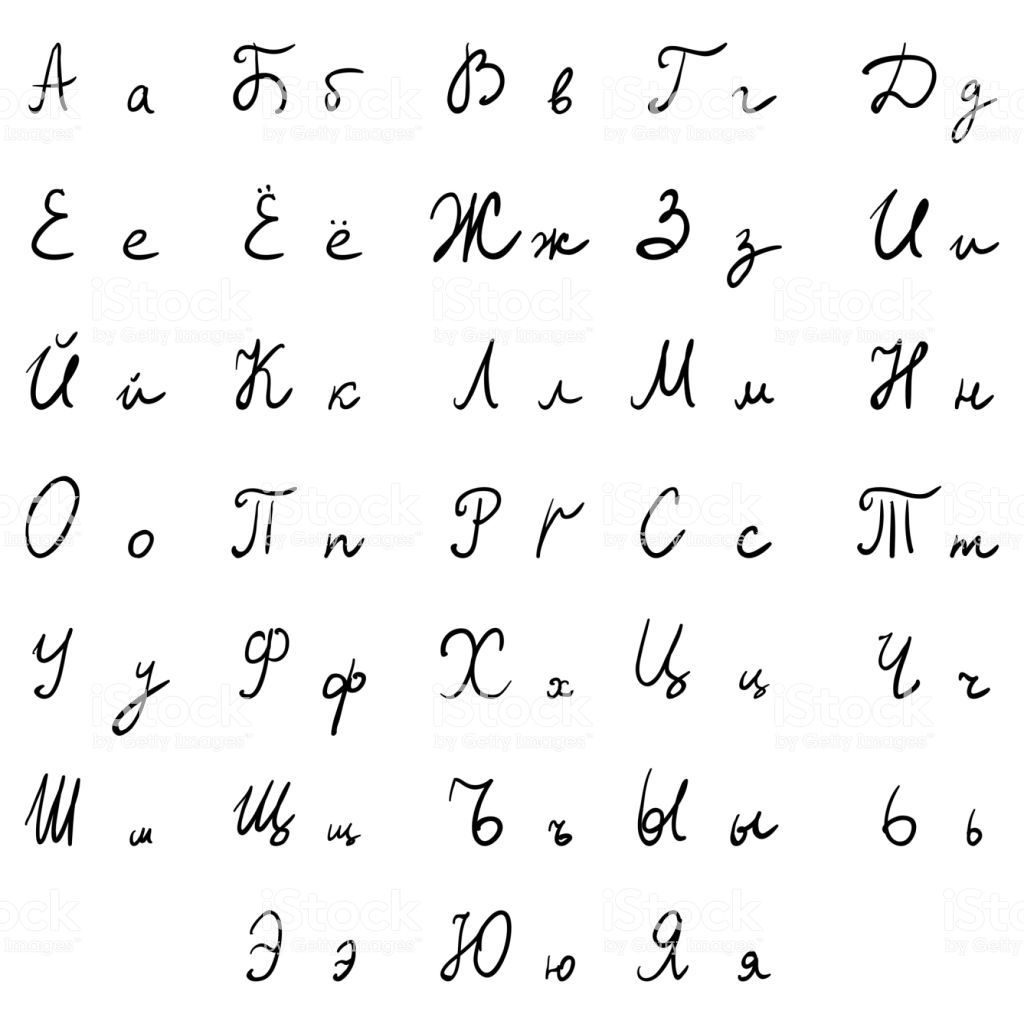 А а Б б В в Г г Д д
Е е Ё ё Ж ж З з И и
Й й К к Л л М м Н н
О о П п Р р С с Т т
У у Ф ф Х х Ц ц Ч ч
Ш ш Щ щ Ъ ъ Ы ы Ь ь
Э э Ю ю Я я
iStock
by Getty Images™